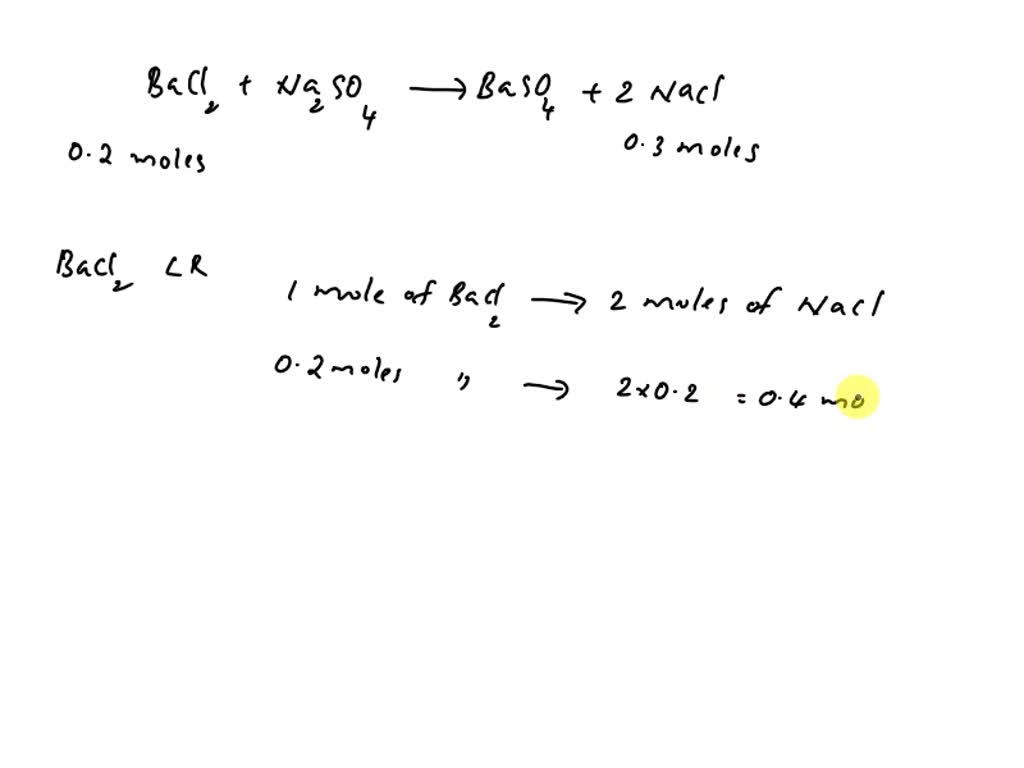 BaCl2 + Na2SO4 → BaSO4 + 2 NaCl
0.2 moles 0.3 moles
BaCl2 LR
1 mole of BaCl2 → 2 moles of NaCl
0.2 moles " → 2×0.2 = 0.4 mo